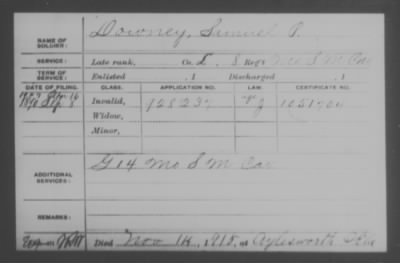 NAME OF SOLDIER: Downey, Samuel P.
SERVICE: Late rank, Co. E, 8 Reg't Mo S M Cav
TERM OF SERVICE: Enlisted , 1 Discharged , 1
DATE OF FILING. CLASS. APPLICATION NO. LAW. CERTIFICATE NO.
Invalid, 128237 1051700
Widow,
Minor,
ADDITIONAL SERVICES: G 14 Mo S M Cav
REMARKS:
Died Nov 14, 1918, at Aylesworth Okla